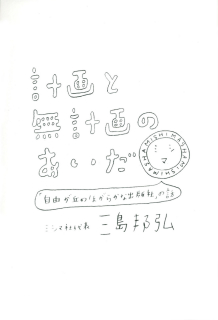 計画と
無計画の
あいだ
MISHIMASHA MISHIMASHA
シ
マ
「自由が丘のほがらかな出版社」の話
ミシマ社代表 三島邦弘